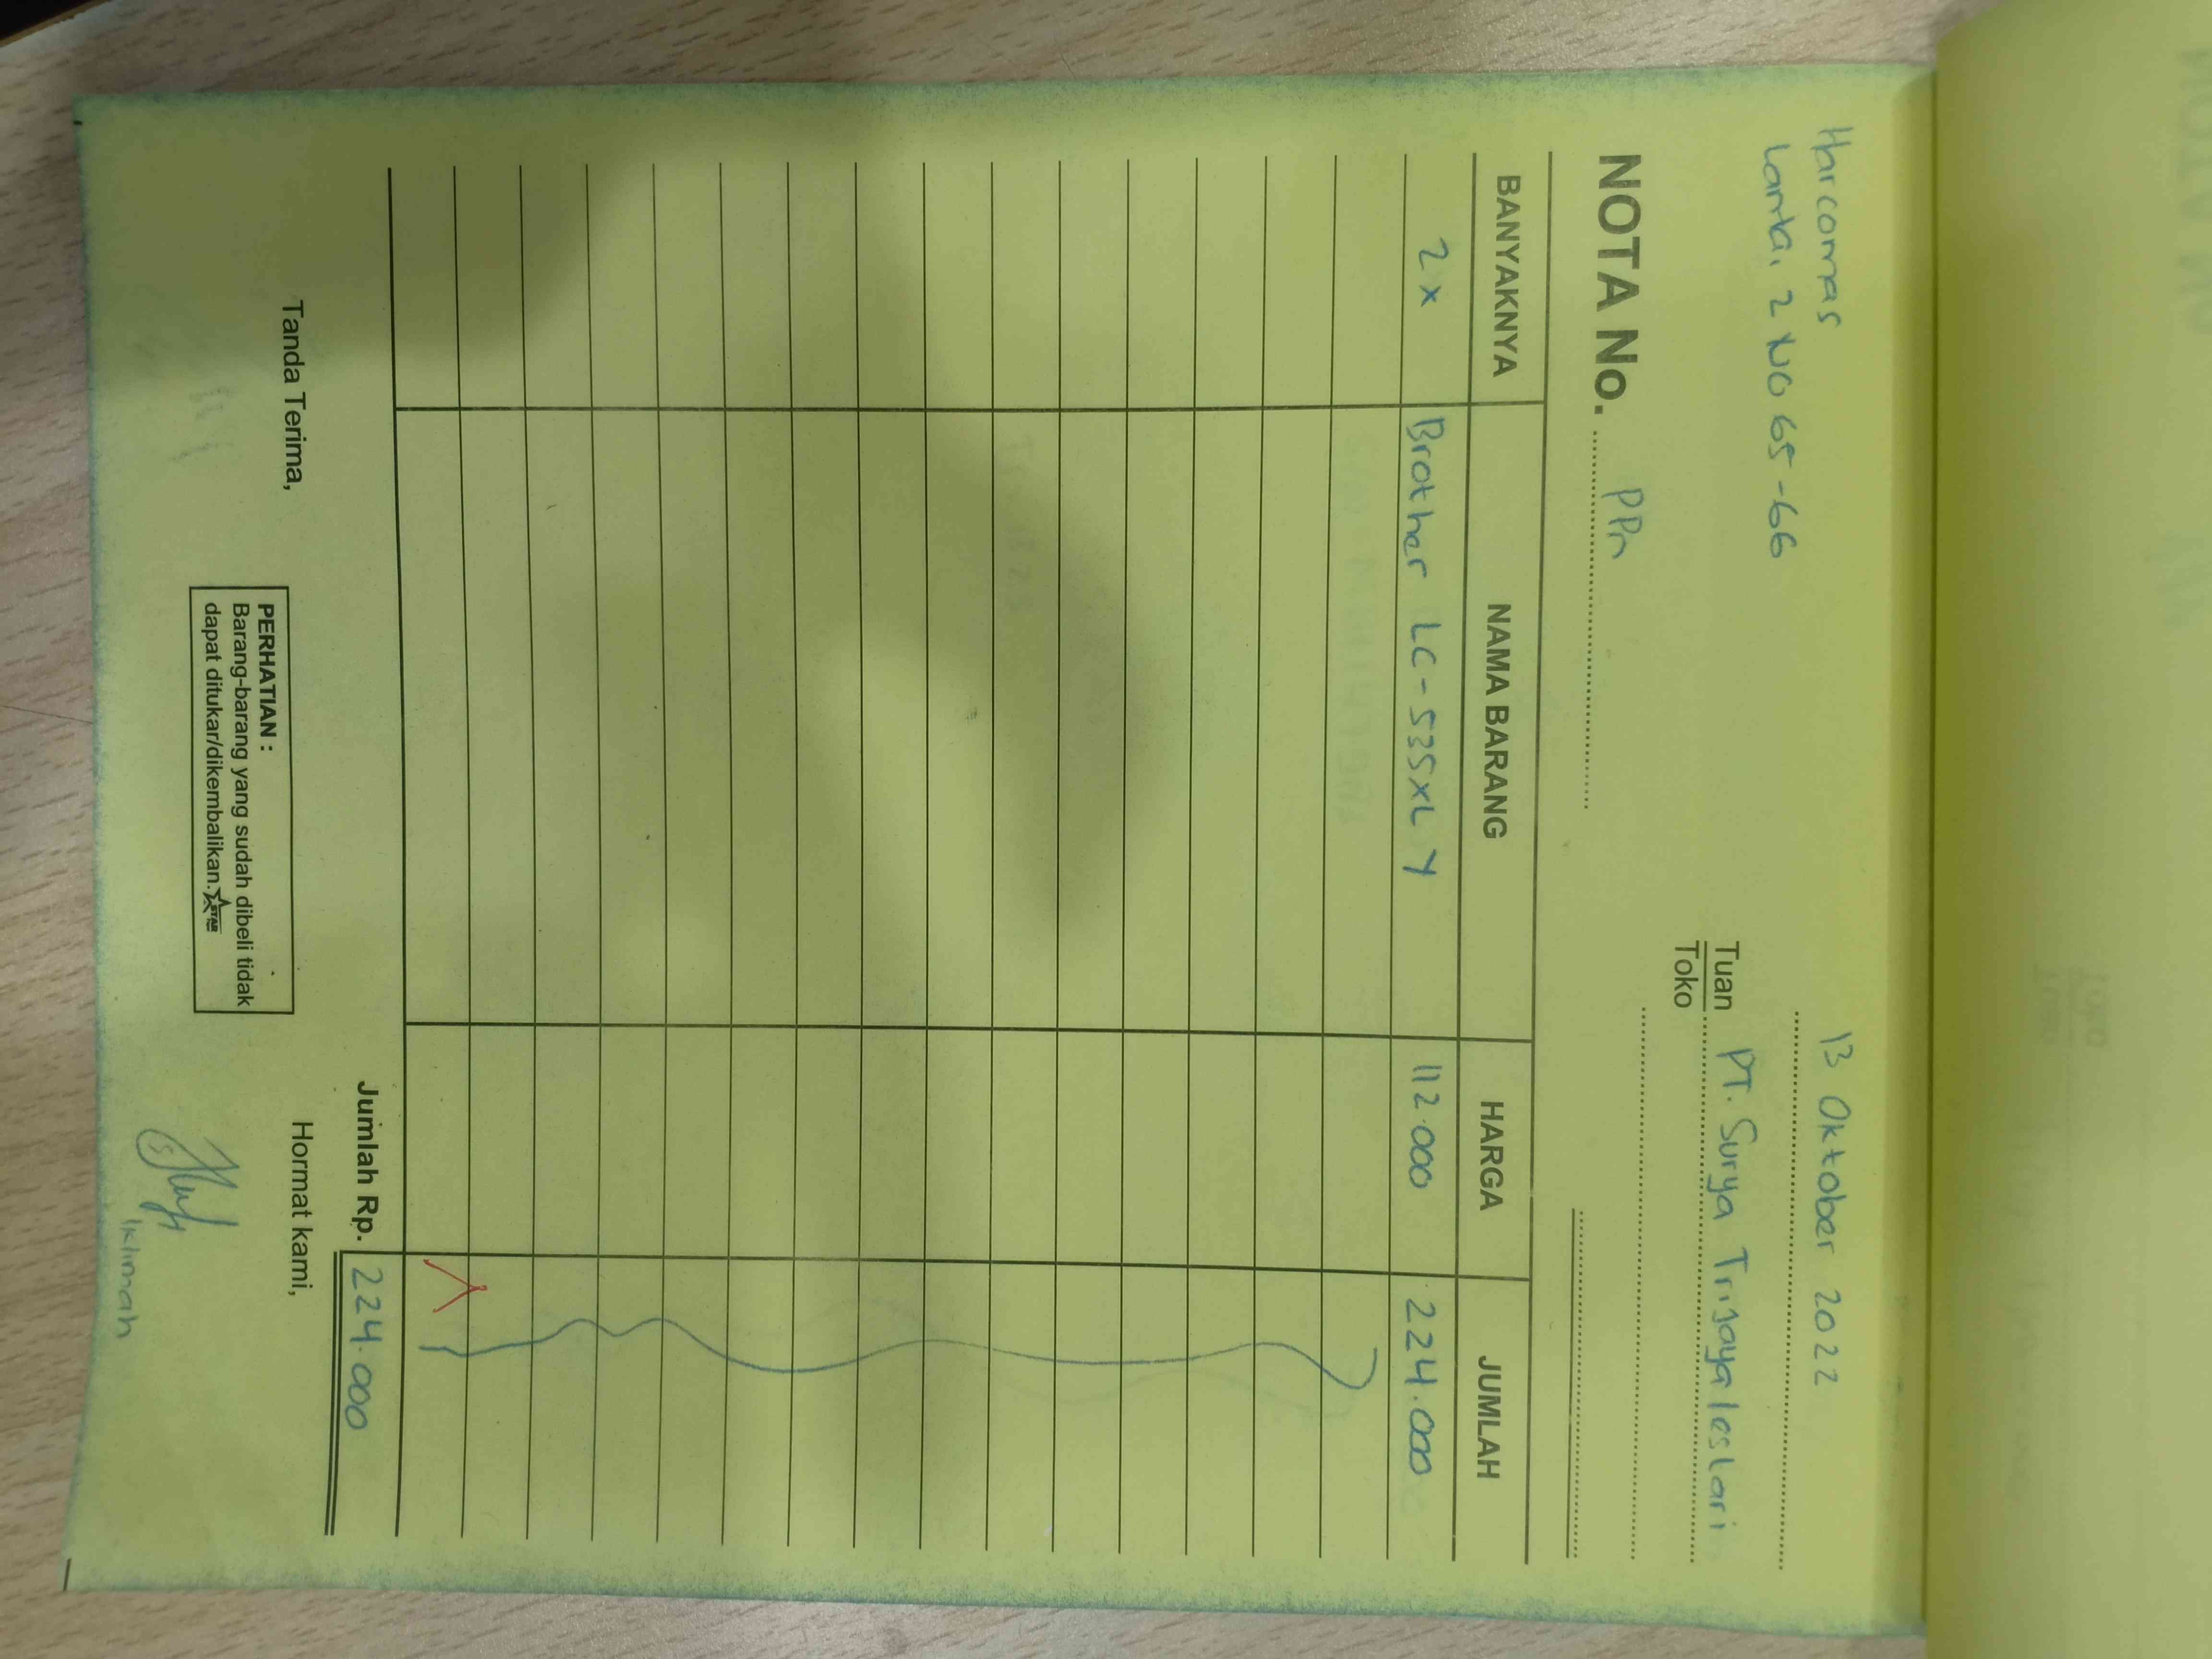 Harcomas
Lantai 2 NO 65-66
13 Oktober 2022
Tuan
Toko
PT. Surya Trijaya lestari
NOTA No. PPn
BANYAKNYA NAMA BARANG HARGA JUMLAH
2 x Brother LC-535XL Y 112.000 224.000
Jumlah Rp. 224.000
Tanda Terima,
PERHATIAN :
Barang-barang yang sudah dibeli tidak
dapat ditukar/dikembalikan.
STAR
Hormat kami,
Iklimah